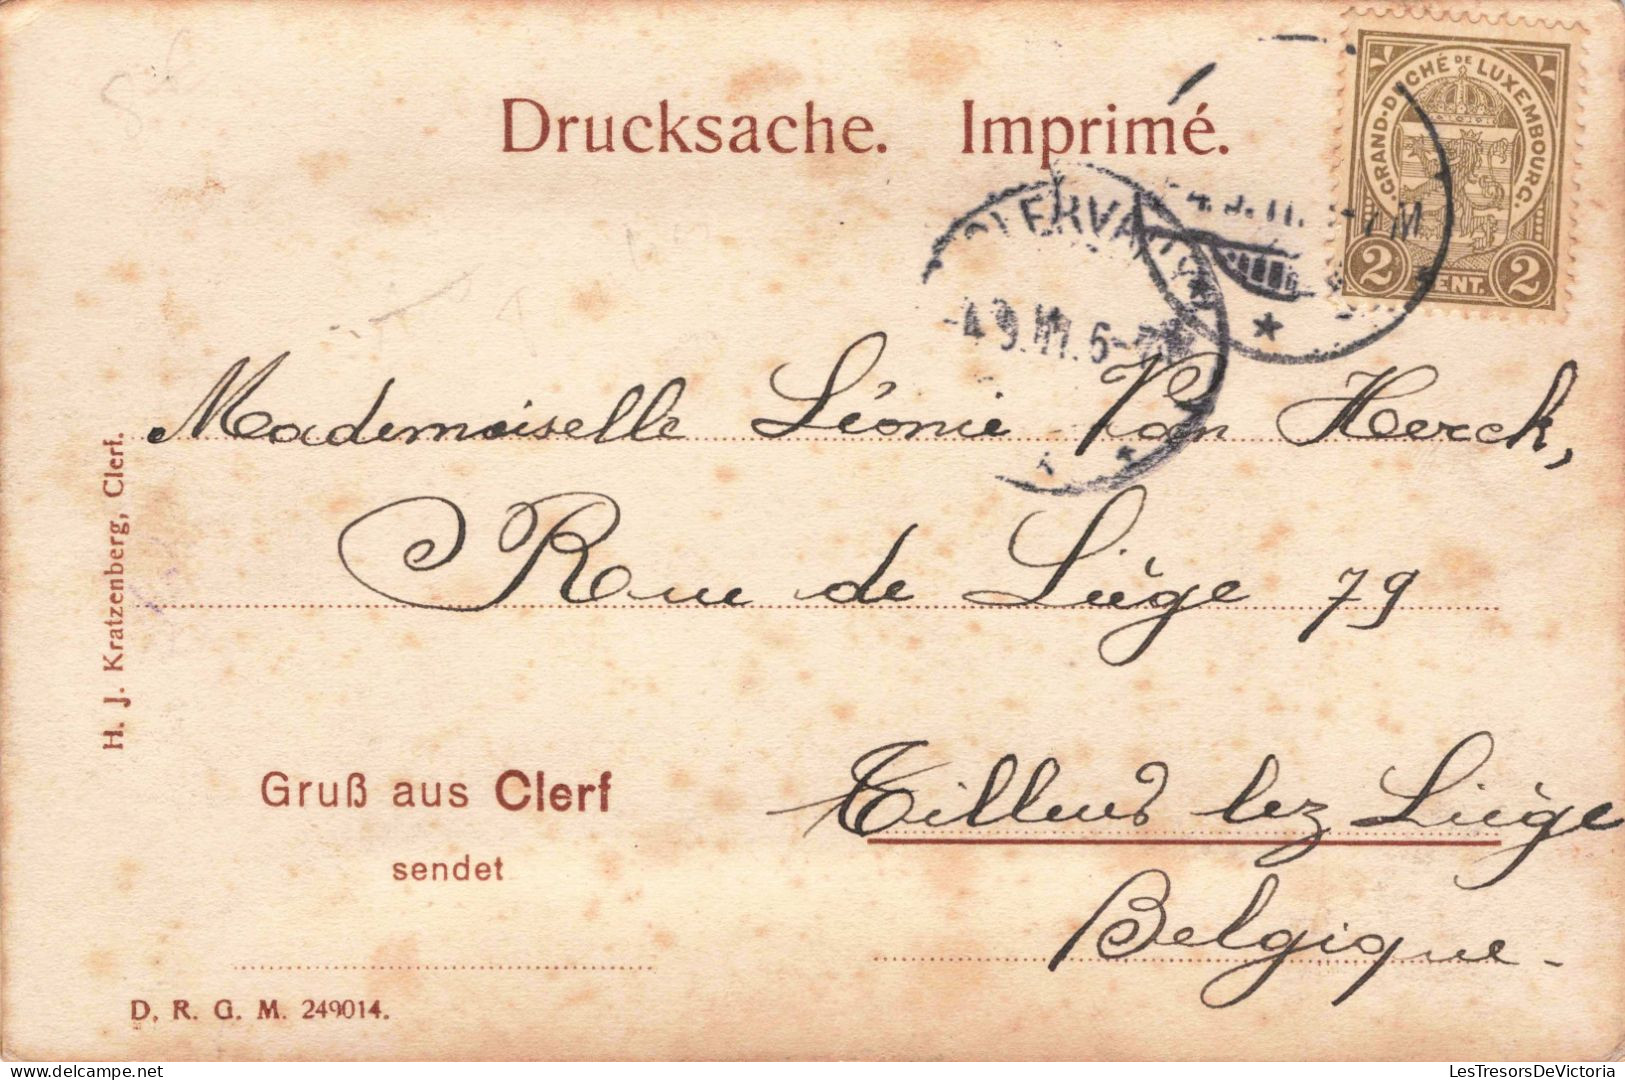 Drucksache. Imprimé.
GRAND-DUCHÉ DE LUXEMBOURG.
2 CENT. 2
CLERVAUX
4.9.11. 6-7
Mademoiselle Léonie Van Herck,
Rue de Liège 79
Tilleur lez Liège
Belgique -
H. J. Kratzenberg, Clerf.
Gruß aus Clerf
sendet
D. R. G. M. 249014.
LesTresorsDeVictoria